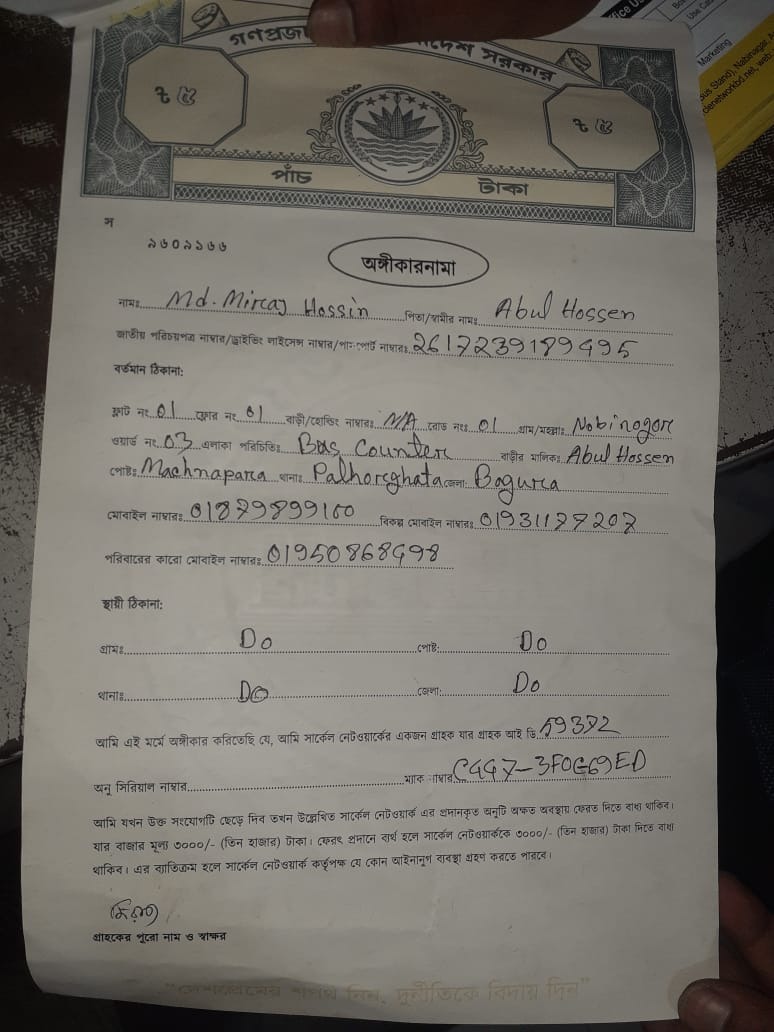 গণপ্রজা দেশ সরকার
৳ ৫ ৳ ৫
পাঁচ টাকা
স
৯৬০৯৯৬৬
অঙ্গীকারনামা
নামঃ Md. Miraj Hossin পিতা/স্বামীর নামঃ Abul Hossen
জাতীয় পরিচয়পত্র নাম্বার/ড্রাইভিং লাইসেন্স নাম্বার/পাসপোর্ট নাম্বারঃ 2617239189495
বর্তমান ঠিকানা:
ফ্লাট নং 01 ফ্লোর নং 01 বাড়ী/হোল্ডিং নাম্বারঃ N/A রোড নংঃ 01 গ্রাম/মহল্লাঃ Nobinogor
ওয়ার্ড নং 03 এলাকা পরিচিতিঃ Bus Counter বাড়ীর মালিকঃ Abul Hossen
পোষ্টঃ Machnapara থানাঃ Palhorghata জেলা: Bogura
মোবাইল নাম্বারঃ 01879899100 বিকল্প মোবাইল নাম্বারঃ 01931177207
পরিবারের কারো মোবাইল নাম্বারঃ 01950868498
স্থায়ী ঠিকানা:
গ্রামঃ Do পোষ্ট: Do
থানাঃ Do জেলা: Do
আমি এই মর্মে অঙ্গীকার করিতেছি যে, আমি সার্কেল নেটওয়ার্কের একজন গ্রাহক যার গ্রাহক আই ডি 59372
অনু সিরিয়াল নাম্বার ম্যাক নাম্বার C447-3F0G69ED
আমি যখন উক্ত সংযোগটি ছেড়ে দিব তখন উল্লেখিত সার্কেল নেটওয়ার্ক এর প্রদানকৃত অনুটি অক্ষত অবস্থায় ফেরত দিতে বাধ্য থাকিব।
যার বাজার মূল্য ৩০০০/- (তিন হাজার) টাকা। ফেরৎ প্রদানে ব্যর্থ হলে সার্কেল নেটওয়ার্ককে ৩০০০/- (তিন হাজার) টাকা দিতে বাধ্য
থাকিব। এর ব্যতিক্রম হলে সার্কেল নেটওয়ার্ক কর্তৃপক্ষ যে কোন আইনানুগ ব্যবস্থা গ্রহণ করতে পারবে।
মিরাজ
গ্রাহকের পুরো নাম ও স্বাক্ষর
"দেশপ্রেমের শপথ নিন, দুর্নীতিকে বিদায় দিন"
Marketing